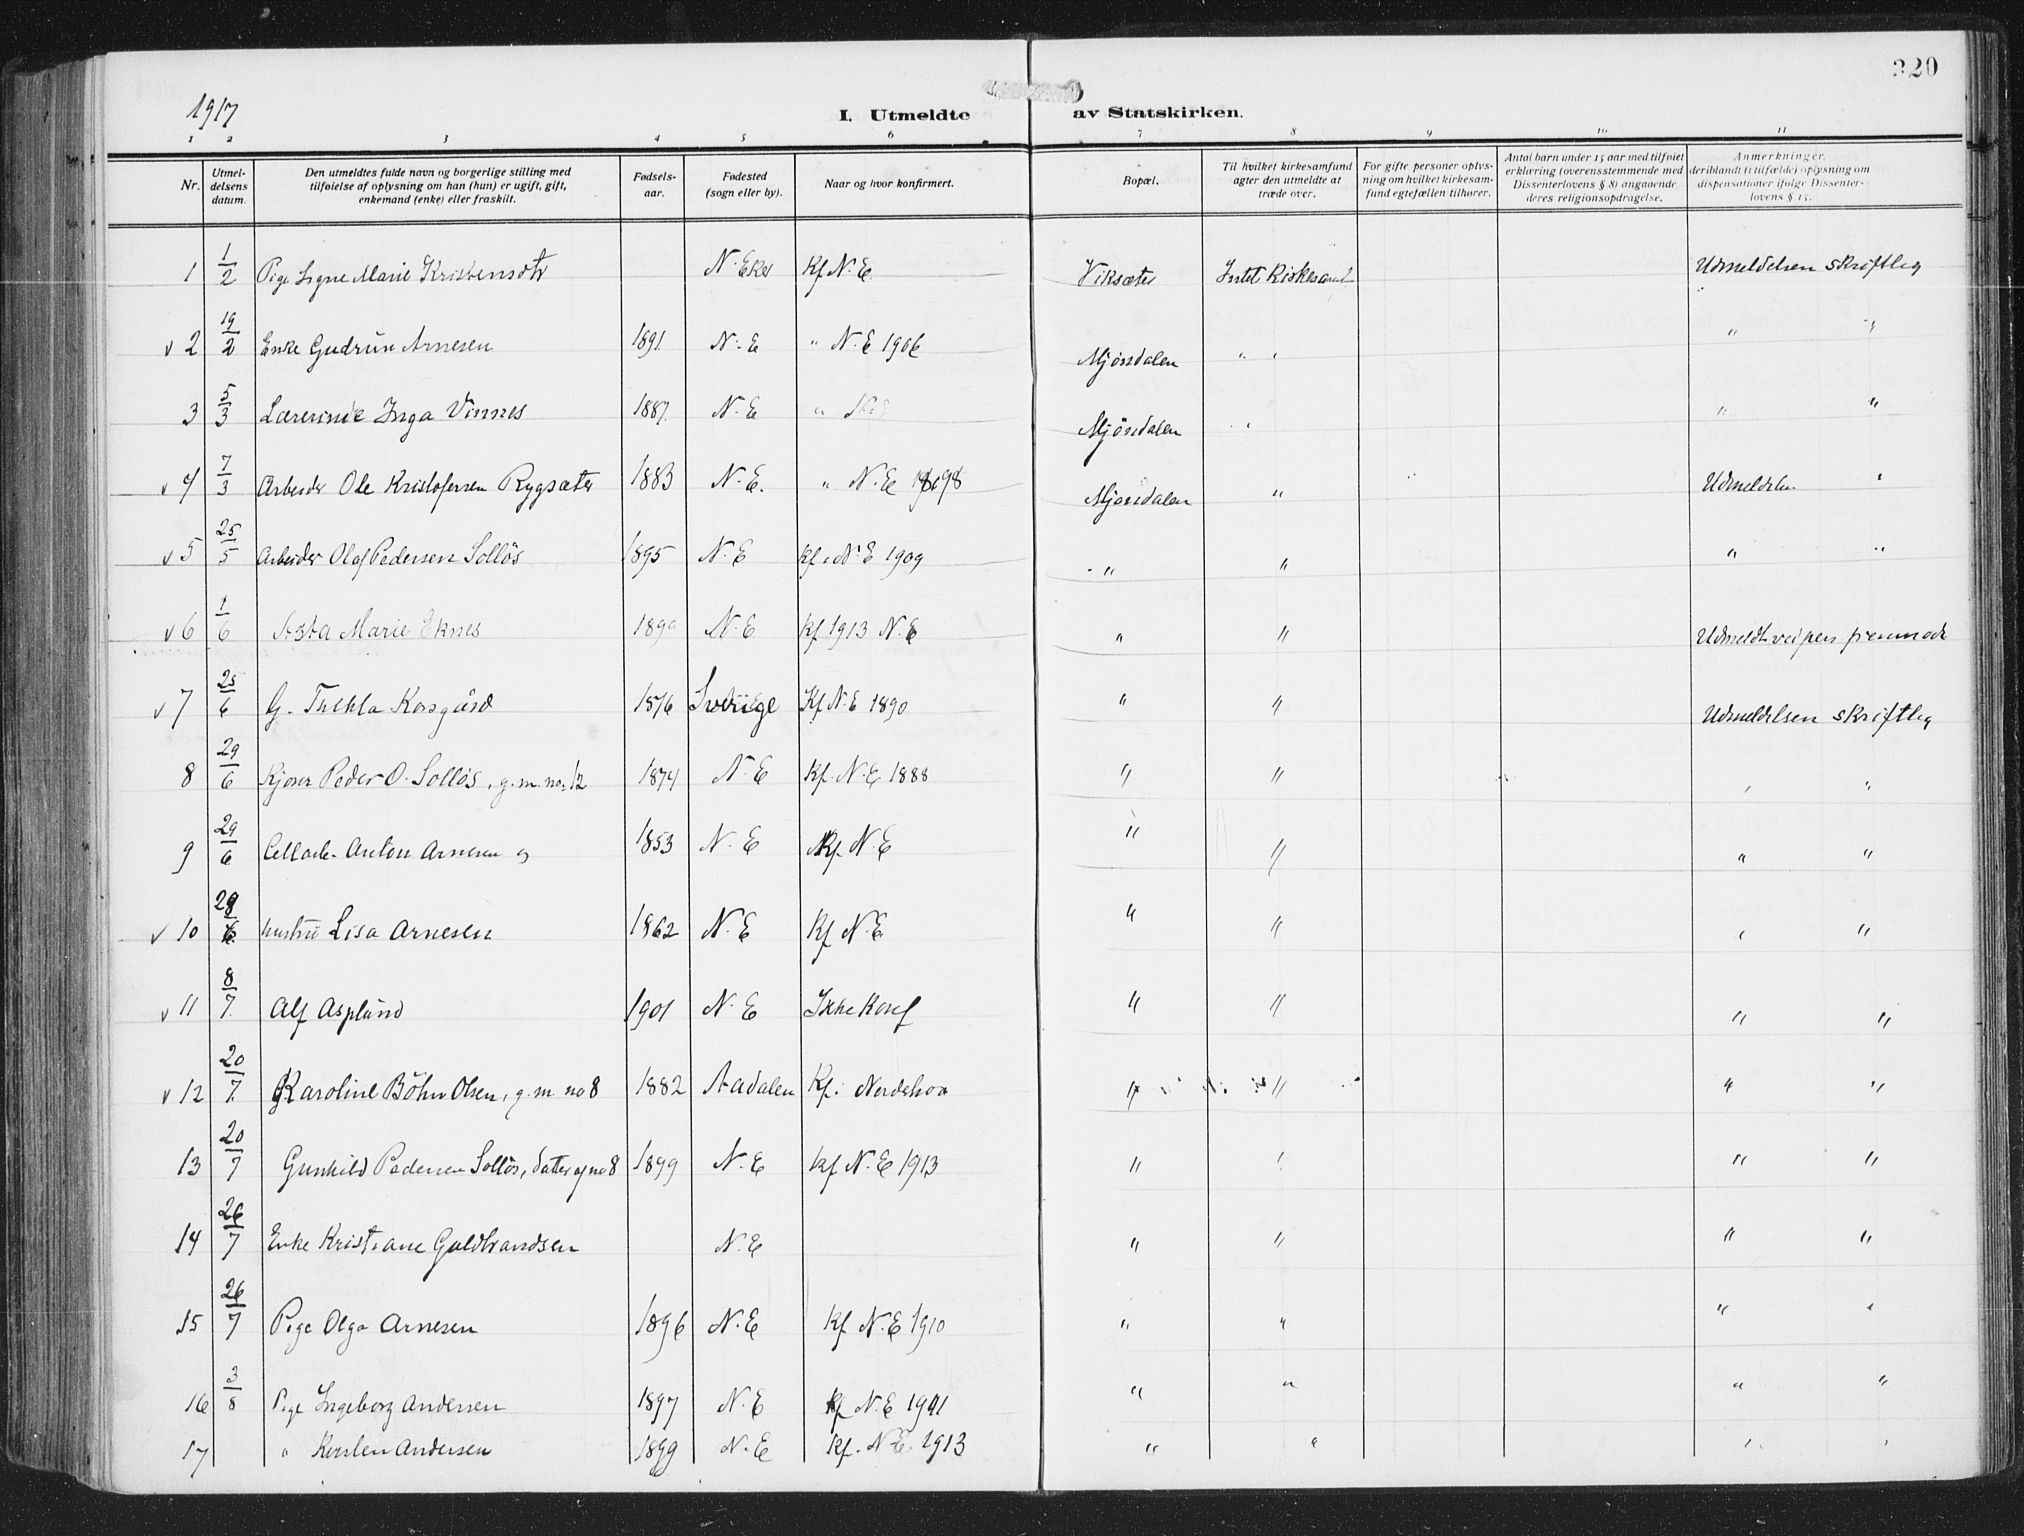 320
1917
I. Utmeldte av Statskirken.
1 2 3 4 5 6 7 8 9 10 11
Nr. | Utmel-delsens datum. | Den utmeldtes fulde navn og borgerlige stilling med tilføielse af oplysning om han (hun) er ugift, gift, enkemand (enke) eller fraskilt. | Fødsels-aar. | Fødested (sogn eller by). | Naar og hvor konfirmert. | Bopæl. | Til hvilket kirkesamfund agter den utmeldte at træde over. | For gifte personer oplys-ning om hvilket kirkesam-fund egtefællen tilhører. | Antal barn under 15 aar med tilføiet erklæring (overensstemmende med Dissenterlovens § 8) angaaende deres religionsopdragelse. | Anmerkninger, deriblandt (i tilfælde) oplysning om dispensationer ifølge Dissenter-lovens § 15.
1 1/2 Pige Signe Marie Kristensdtr N. Eker Kf N. E. Viksæter Intet Kirkesamf Udmeldelsen skriftleg
v 2 19/2 Enke Gudrun Arnesen 1891 N. E " N. E 1906 Mjöndalen " " " "
3 5/3 Lærerinde Inga Vinnes 1887 N. E " N. E Mjöndalen " " "
v 4 7/3 Arbeider Ole Kristofersen Rygsæter 1883 N. E. " N. E 1898 Mjöndalen " Udmeldelsen "
v 5 25/5 Arbeider Olaf Pedersen Sollös 1895 N. E Kf. N. E 1909 " " " "
v 6 1/6 Asta Marie Eknes 1899 N. E Kf 1913 N. E " " Udmeldt ved pers fremmöde
v 7 25/6 G. Thekla Korsgård 1876 Sverige Kf N. E 1890 " " Udmeldelsen skriftleg
8 29/6 Kjører Peder O. Sollös, g. m. no. 12 1874 N. E Kf. N. E 1888 " " " "
9 29/6 Anton Arnesen og 1853 N. E Kf. N. E " " " "
v 10 29/6 hustru Lisa Arnesen 1862 N. E Kf N. E " " " "
v 11 8/7 Alf Asplund 1901 N. E Ikke Konf " " " "
v 12 20/7 Karoline Böhn Olsen, g. m no 8 1882 Aadalen Kf. Norderhov " " " "
13 20/7 Gunhild Pedersen Sollös, datter af no 8 1899 N. E Kf N. E 1913 " " " "
14 26/7 Enke Kristiane Guldbrandsen N. E " " " "
15 26/7 Pige Olga Arnesen 1896 N. E Kf N. E 1910 " " " "
16 3/8 Pige Ingeborg Andersen 1897 N. E Kf N. E 1911 " " " "
17 " Andersen 1899 N. E Kf. N. E. 1913 " " " "